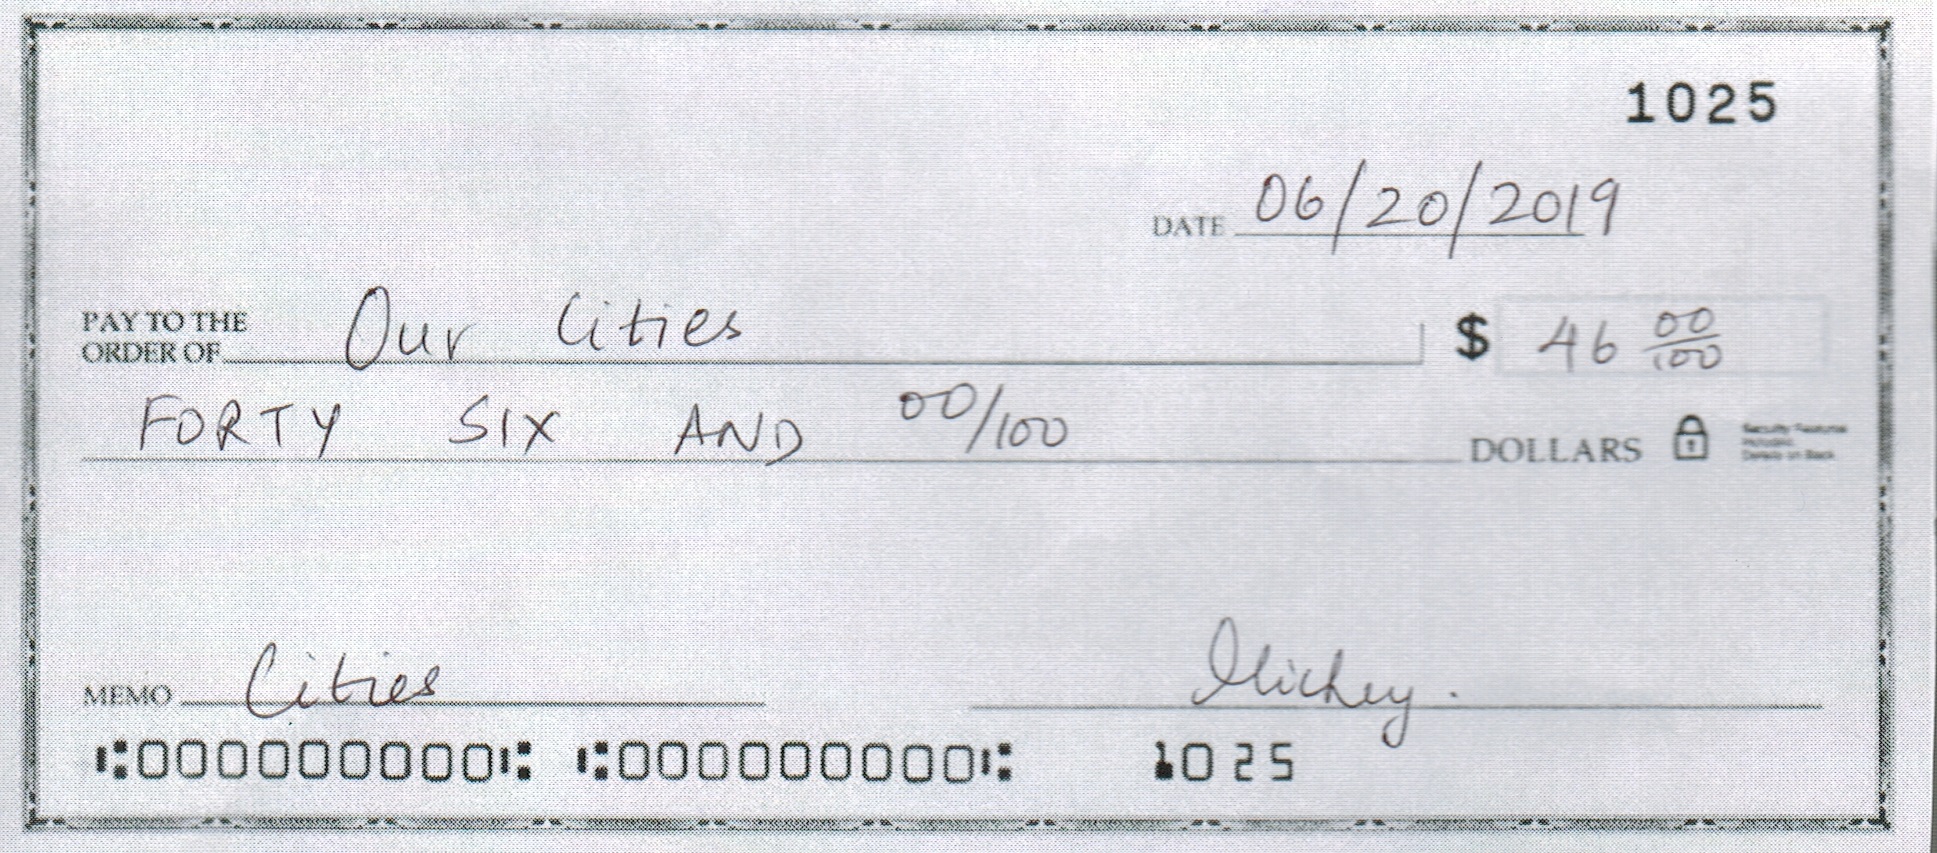 1025
DATE 06/20/2019
PAY TO THE
ORDER OF Our Cities $ 46 00/100
FORTY SIX AND 00/100 DOLLARS
Security Features
Included.
Details on Back
MEMO Cities Mickey.
⑆000000000⑆ ⑆000000000⑆ 1025